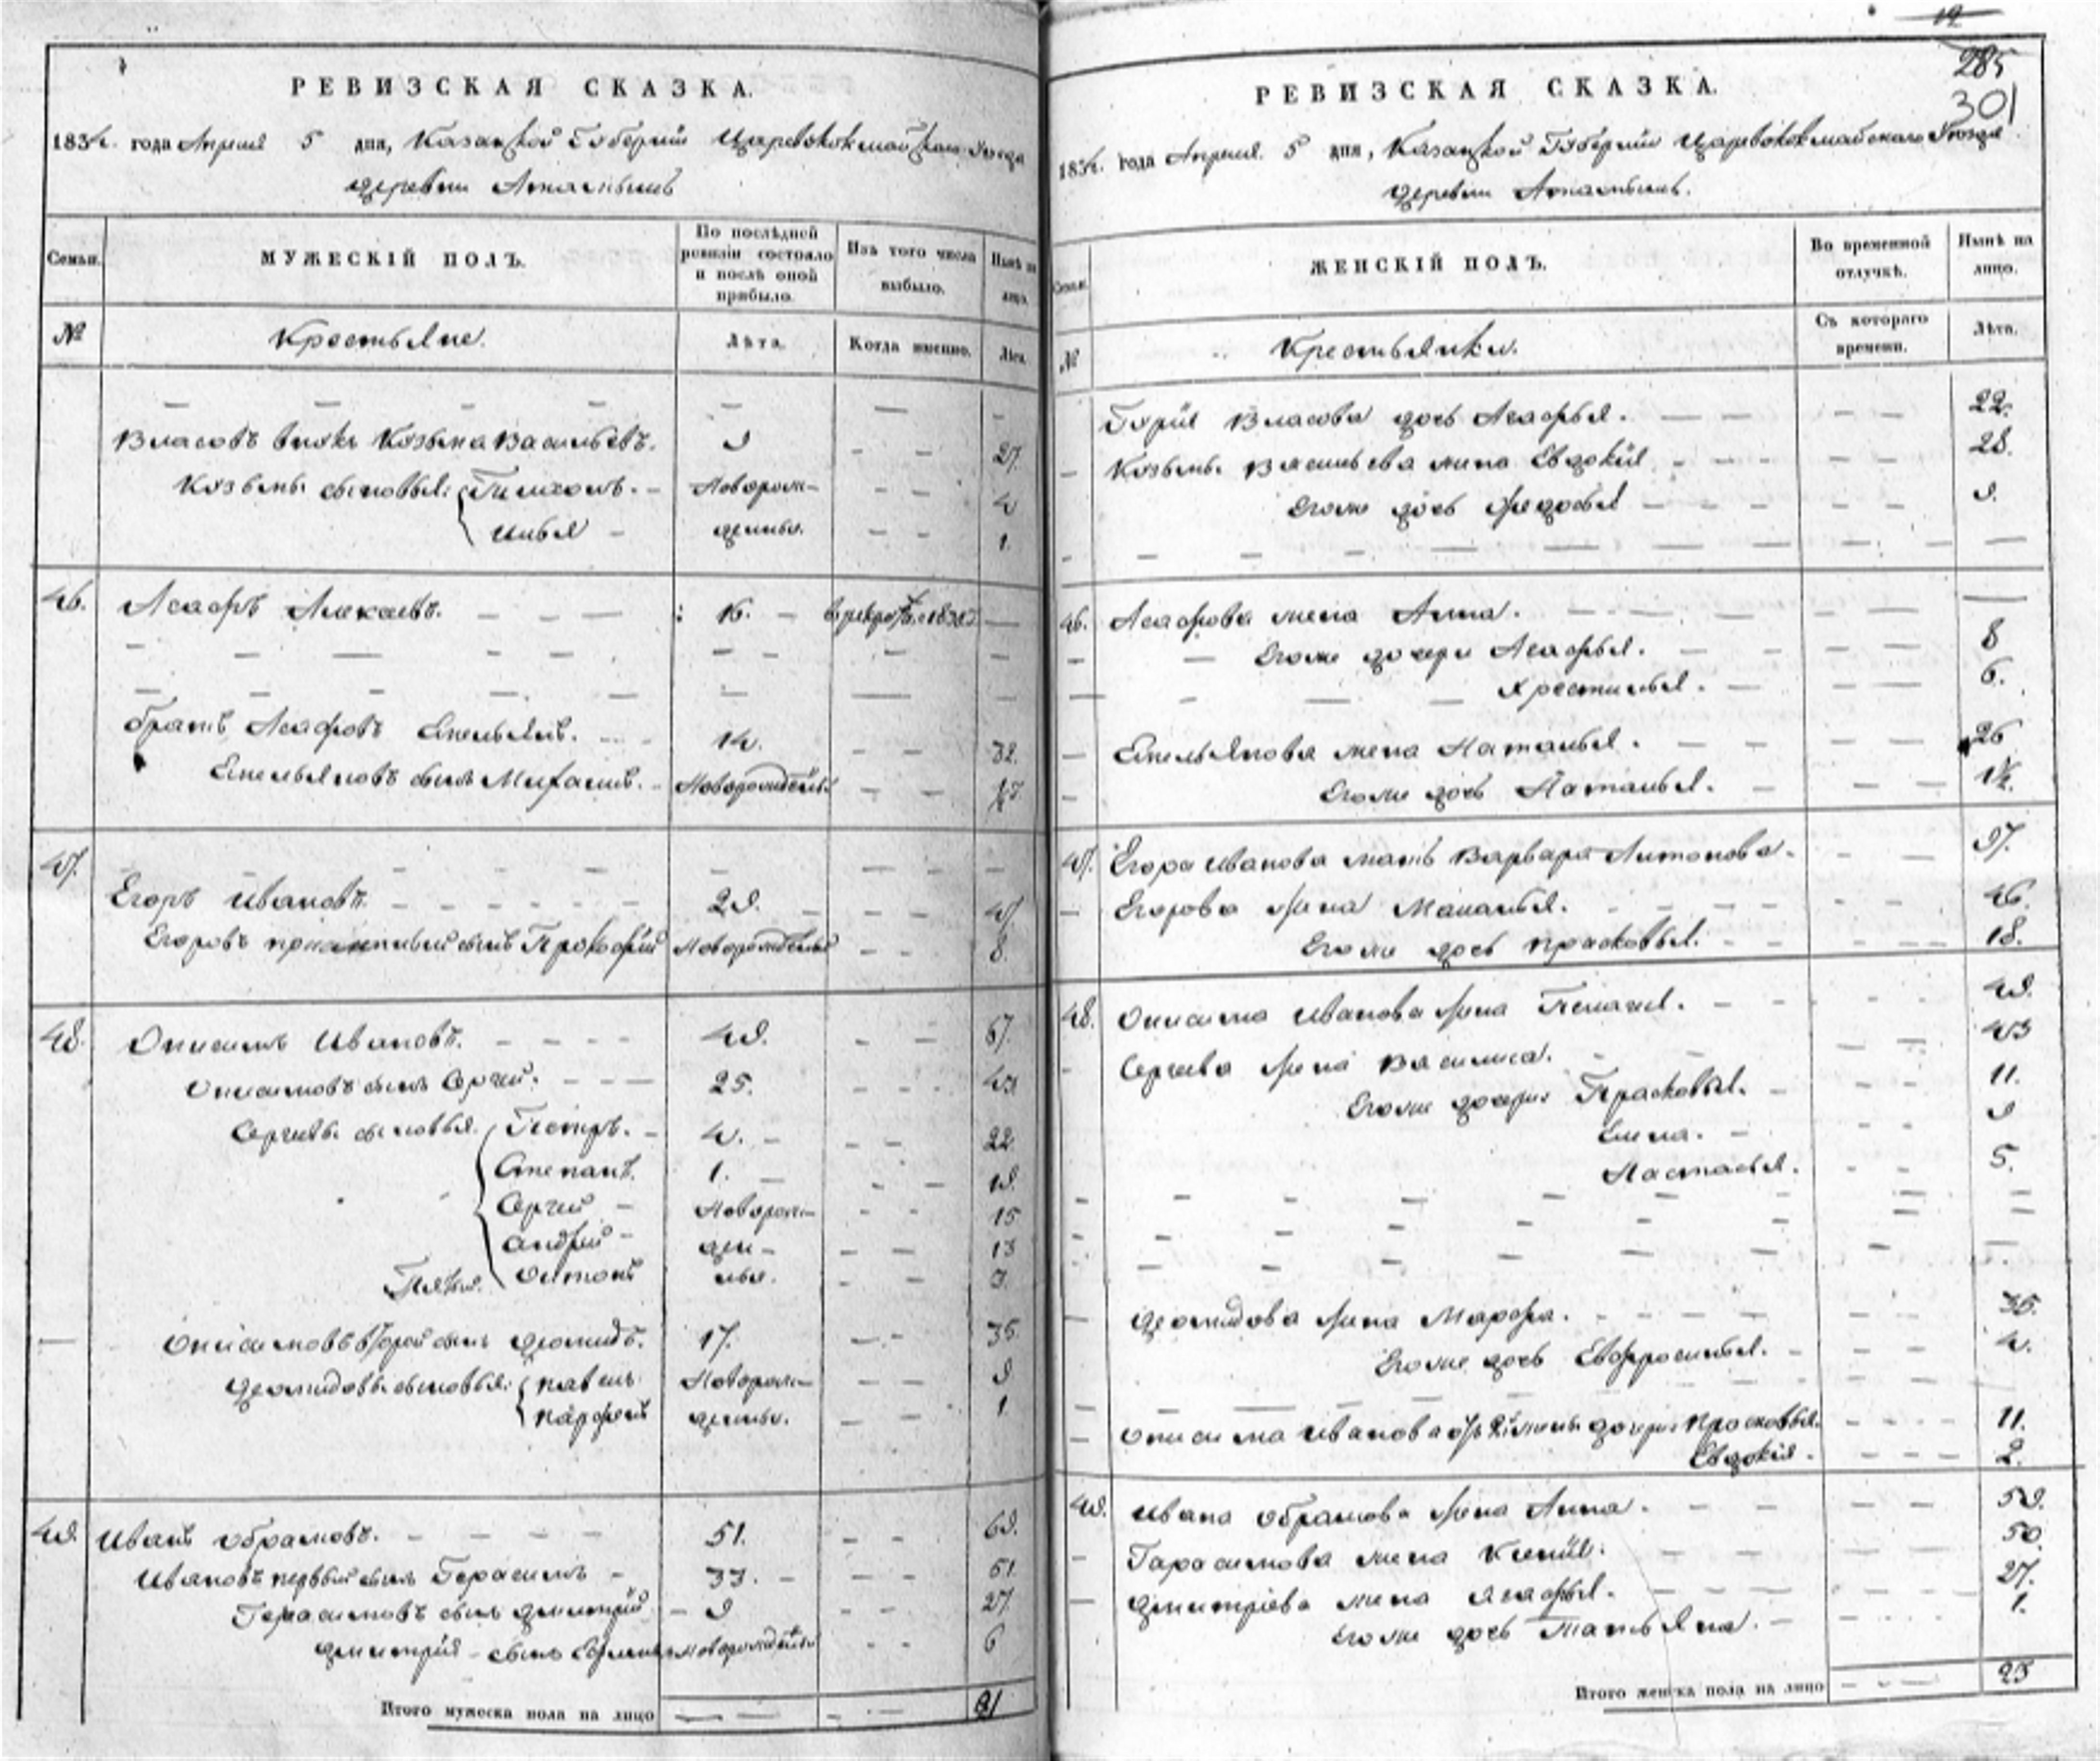 РЕВИЗСКАЯ СКАЗКА.
1834. года Апреля 5 дня, Казанской Губернии Царевококшайскаго Уезда
деревни
Семьи.
МУЖЕСКІЙ ПОЛЪ.
По послѣдней ревизіи состояло и послѣ оной прибыло.
Изъ того числа выбыло.
Нынѣ на лицо.
№
Крестьяне.
Лѣта.
Когда именно.
Лѣта.
Власовъ внукъ Козьма Васильевъ. 9 27.
Козьмы сыновья: Тимхонъ. Новорож- 4
Илья денные. 1.
46. Асафъ Алекаевъ. 16. 
братъ Асафовъ Емельянъ. 14. 32.
Емельяновъ сынъ Михаилъ. Новорожденный
47.
Егоръ Ивановъ. 29. 47
Егоровъ приемный сынъ Прокофий Новорожденный 8.
48. Онисимъ Ивановъ. 49. 67.
Онисимовъ сынъ Сергей. 25. 43
Сергеевы сыновья. Петръ. 4. 22
Степанъ. 1. 19.
Сергей Новорож- 15
Андрей ден- 13
Антонъ ные. 3.
Онисимовъ второй сынъ Деомидъ. 17. 35.
Деомидовы сыновья: Павелъ Новорож- 9
Парфенъ денные. 1.
49. Иванъ Обрамовъ. 51. 69.
Ивановъ первый сынъ Герасимъ 33. 51
Герасимовъ сынъ Дмитрий 9 27.
Дмитрия сынъ Новорожденный 6
Итого мужеска пола на лицо 31
12
285
301
РЕВИЗСКАЯ СКАЗКА.
1834. года Апреля. 5 дня, Казанской Губернии Царевококшайскаго Уезда
деревни
Семьи.
ЖЕНСКІЙ ПОЛЪ.
Во временной отлучкѣ.
Нынѣ на лицо.
№
Крестьянки.
Съ котораго времени.
Лѣта.
Власова дочь Агафья. 22.
Козьмы Васильева жена Евдокия 28.
Егоже дочь Федосья 9.
46. Асафова жена Анна.
Егоже дочери Агафья. 8
Хрестинья. 6.
Емельянова жена Наталья. 26
Егоже дочь Наталья. 1/2.
47. Егора Иванова мать Варвара Антонова. 97.
Егорова жена Маланья. 46.
Егоже дочь Прасковья. 18.
48. Онисима Иванова жена Пелагея. 49.
Сергеева жена Василиса. 43
Егоже дочери Прасковья. 11.
Елена. 9
Настасья. 5.
Деомидова жена Марфа. 35.
Егоже дочь Евфросинья. 4.
Онисима Иванова отъ 2й жены дочери Прасковья. 11.
Евдокия. 2.
49. Ивана Обрамова жена Анна. 59.
Гарасимова жена Ксения. 50.
Дмитриева жена Агафья. 27.
Егоже дочь Татьяна. 1.
Итого женска пола на лицо 23